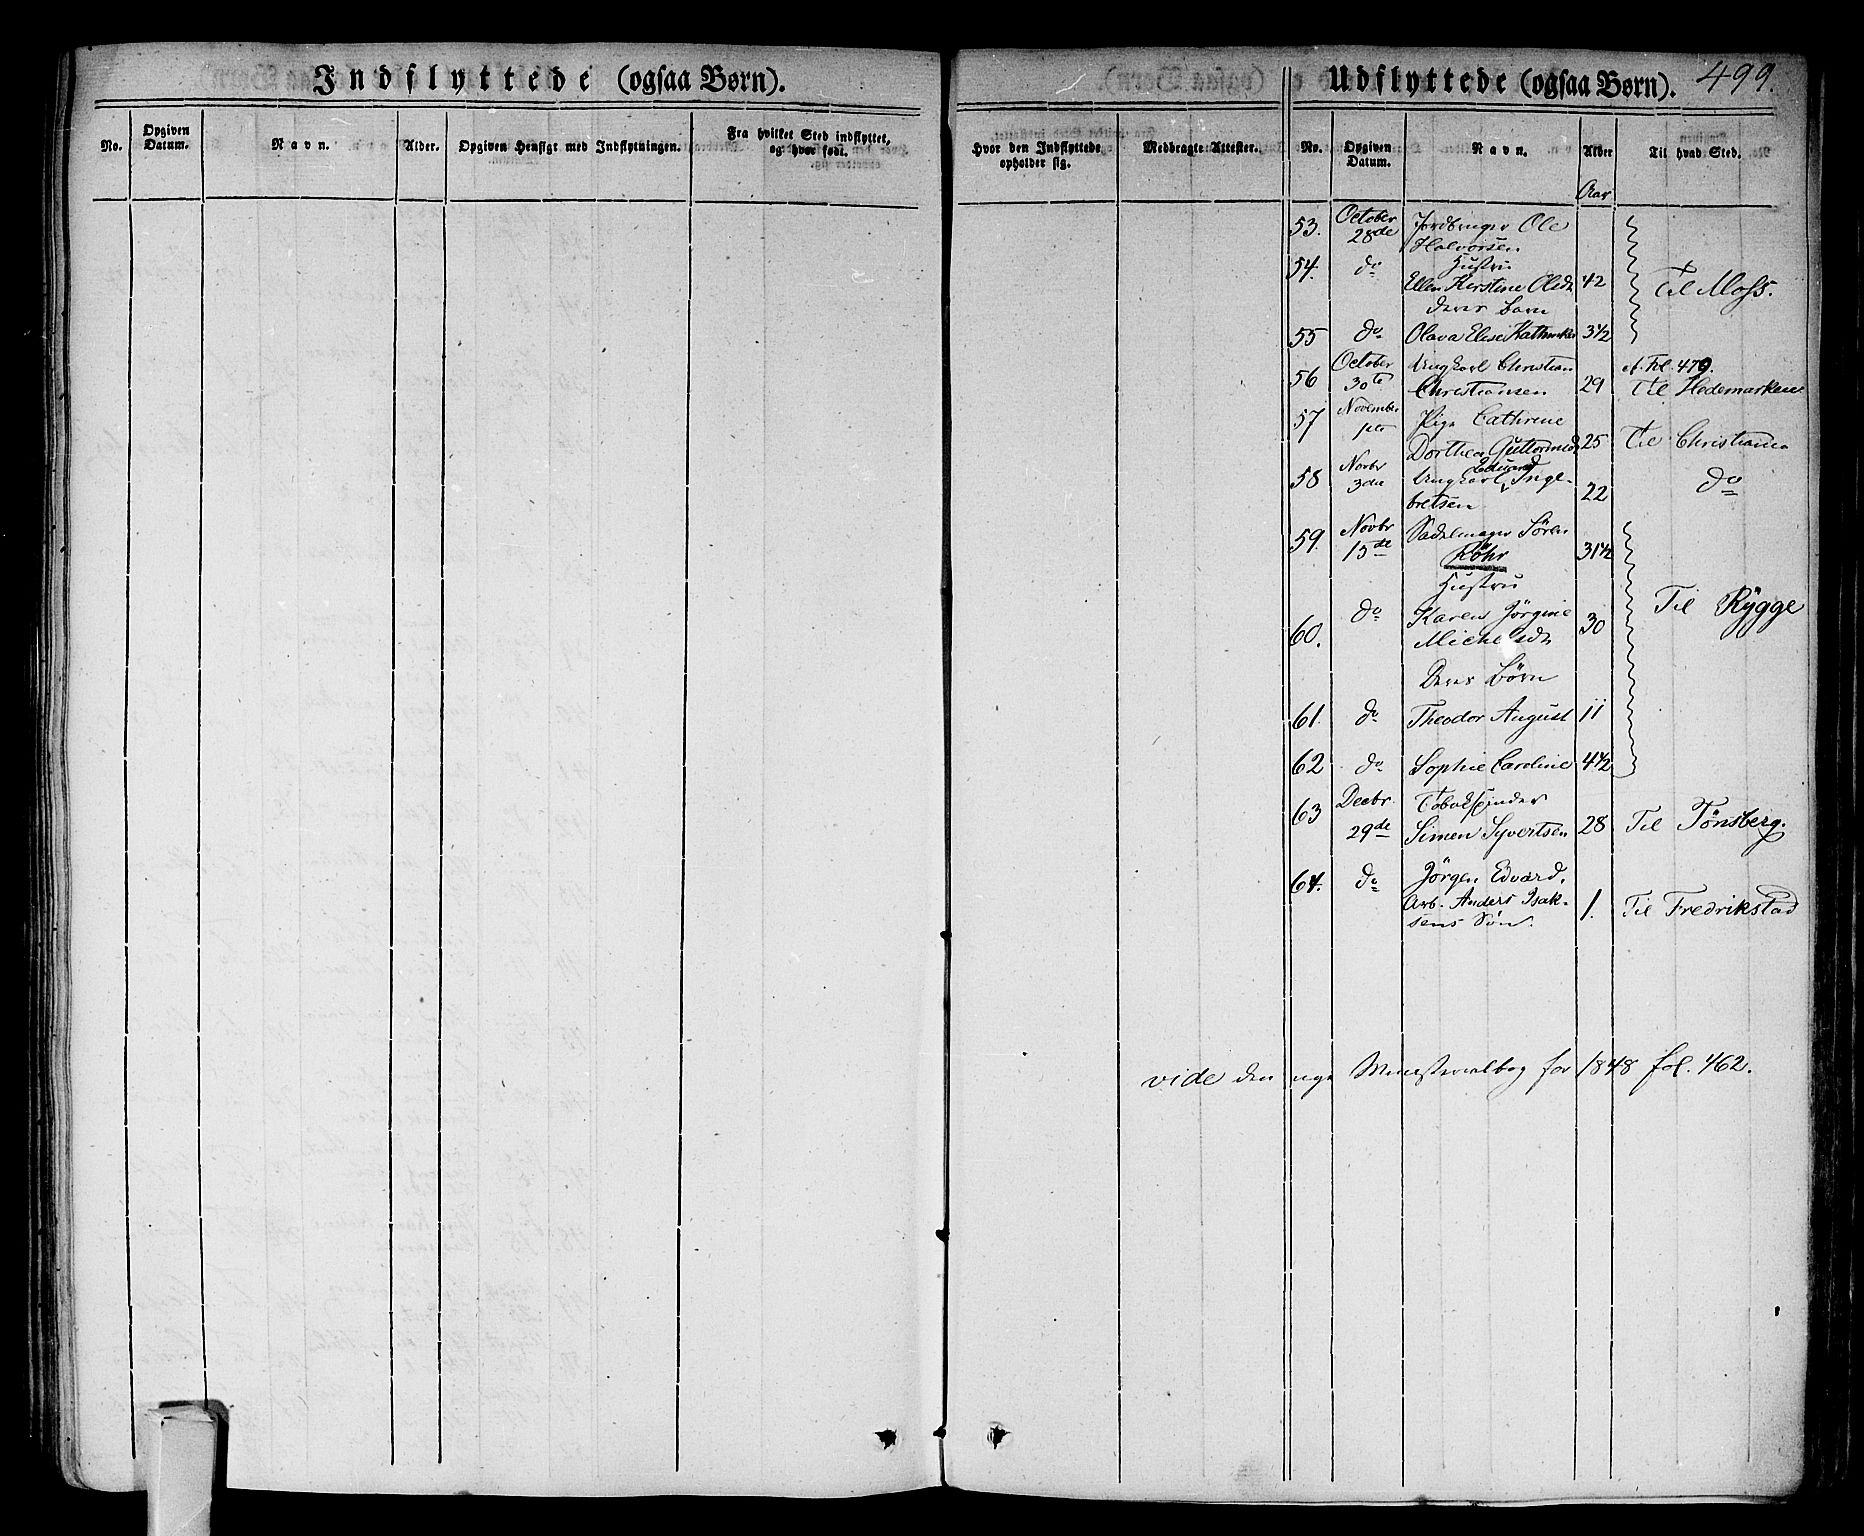 Indflyttede (ogsaa Børn).
No.
Opgiven Datum.
Navn.
Alder.
Opgiven Hensigt med Indflytningen.
Fra hvilket Sted indflyttet, og hvor født.
Hvor den Indflyttede opholder sig.
Medbragte Attester.
Udflyttede (ogsaa Børn). 499.
No.
Opgiven Datum.
Navn.
Alder
Til hvad Sted.
Aar
53. October 28de Jordbruger Ole
Halvorsen
54. do Hustru
Ellen Kirstine Olsdr 42 Til Moss.
deres Barn
55 do Olava Elise 3 1/2
56 October 30te Ungkarl Christian
Christiansen 29 Til Hedemarken
57 November Pige Cathrine
Dorthea 25 Til Christiania
58 Novbr 3die Ungkarl Edvard Inge-
bretsen 22 do
59. Novbr 15de Sadelmager Søren
Röhr 31 1/2
Hustru
60. do Karen Jörgine
Michelsdr 30 Til Rygge
Deres Börn
61. do Theodor August 11
62 do Sophie Caroline 4 1/2
63 Decbr. 29de Tobakspinder
Simen Syvertsen 28 Til Tönsberg.
64. do Jörgen Edvard,
Arb. Anders Isak-
sens Sön. 1. Til Fredrikstad
vide den nye Ministerialbog for 1848 fol. 462.